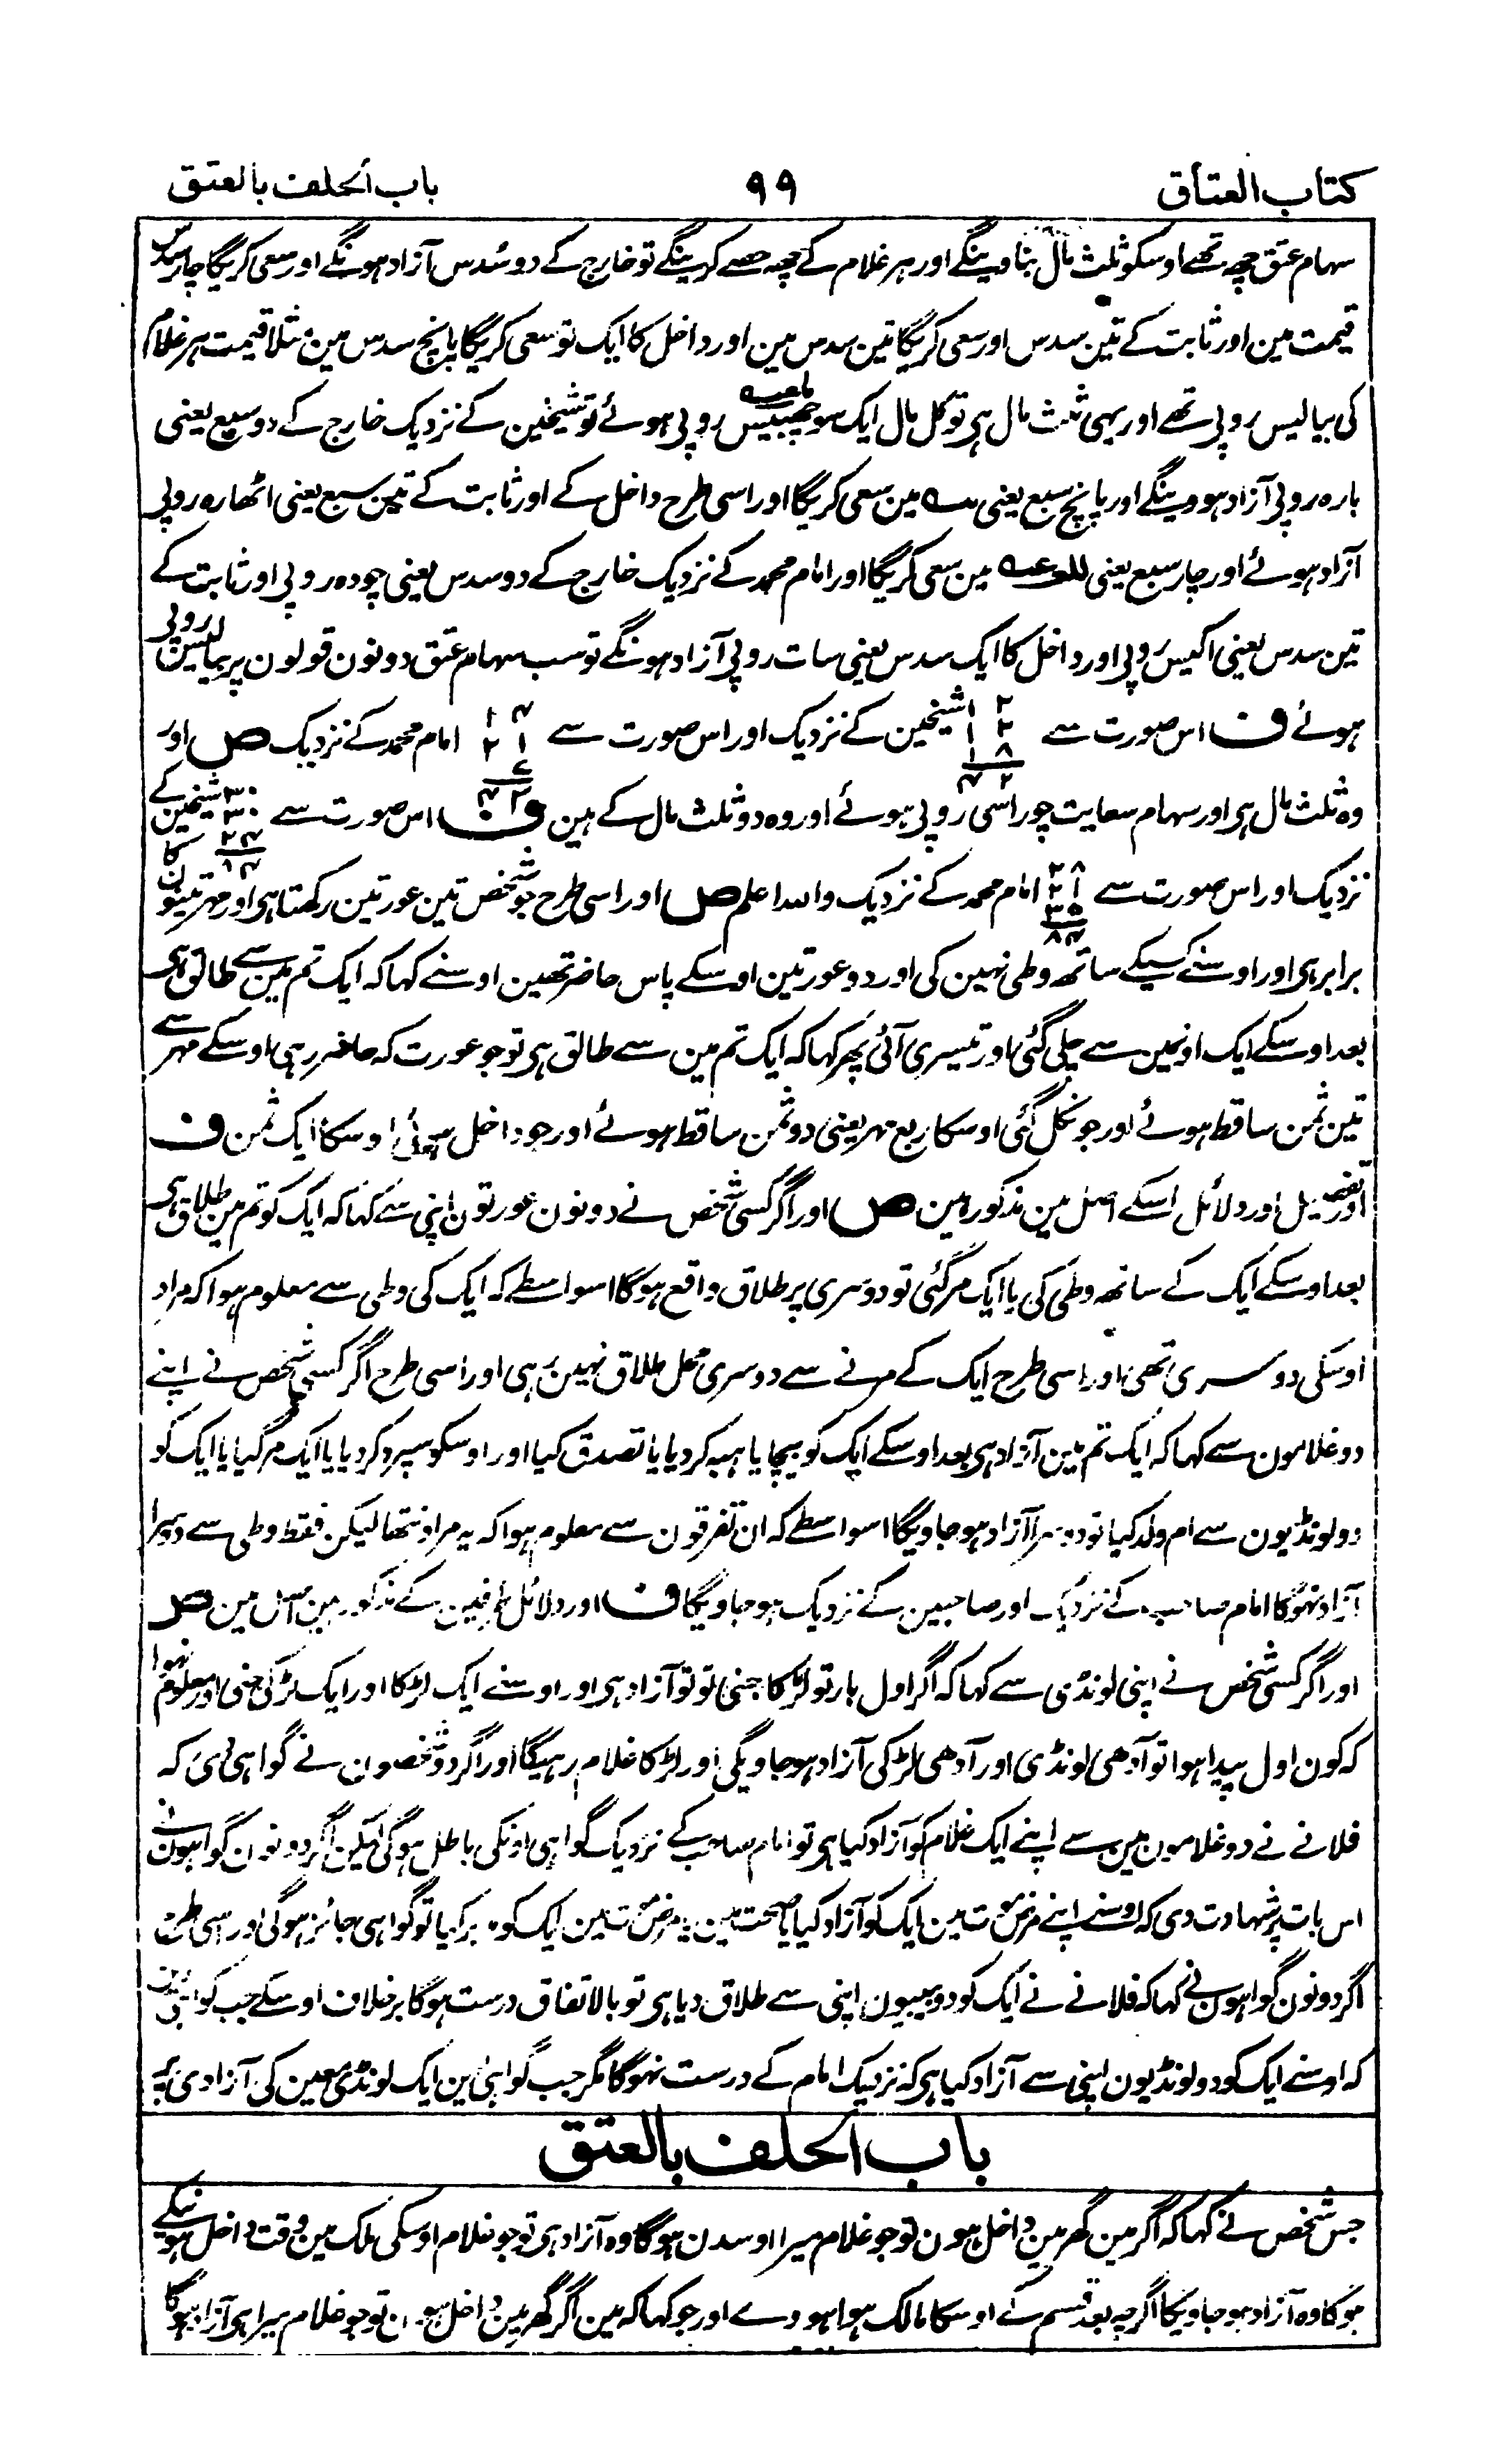 کتاب العتاق ۹۹ باب الحلف بالعتق
سہام عتق چھہ تھے اوسکو ثلث مال بناوینگے اور ہر غلام کے چھہ حصے کرینگے تو خارج کے دو سُدس آزاد ہونگے اور سعی کریگا چار سدس
قیمت مین اور ثابت کے تین سدس اور سعی کریگا تین سدس مین اور داخل کا ایک تو سعی کریگا پانچ سدس مین مثلا قیمت ہر غلام
کی بیالیس روپی تھے اور یہی ثلث مال ہی تو کل مال ایک سو چھبیس روپی ہوئے تو شیخین کے نزدیک خارج کے دو سبع یعنی
بارہ روپی آزاد ہووینگے اور پانچ سبع یعنی مین سعی کریگا اور اسی طرح داخل کے اور ثابت کے تین سبع یعنی اٹھارہ روپی
آزاد ہوئے اور چار سبع یعنی مین سعی کریگا اور امام محمد کے نزدیک خارج کے دو سدس یعنی چودہ روپی اور ثابت کے
تین سدس یعنی اکیس روپی اور داخل کا ایک سدس یعنی سات روپی آزاد ہونگے تو سب سہام عتق دونون قولون پر بیالیس روپی
ہوئے ف اس صورت سے شیخین کے نزدیک اور اس صورت سے امام محمد کے نزدیک ص اور
وہ ثلث مال ہی اور سہام سعایت چوراسی روپی ہوئے اور وہ دو ثلث مال کے ہین ف اس صورت سے ۳۰ ۳۰ ۲۴ ۸۴ شیخین کے
نزدیک اور اس صورت سے ۲۸ ۲۱ ۳۵ ۸۴ امام محمد کے نزدیک واللہ اعلم ص اور اسی طرح جو شخص تین عورتین رکھتا ہی اور مہر تینون کا
برابر ہی اور اوسنے کسیکے ساتھ وطی نہین کی اور دو عورتین اوسکے پاس حاضر تھین اوسنے کہا کہ ایک تم مین سے طالق ہی
بعد اوسکے ایک اونمین سے چلی گئی اور تیسری آئی پھر کہا کہ ایک تم مین سے طالق ہی تو جو عورت کہ حاضر رہی اوسکے مہر سے
تین ثمن ساقط ہوئے اور جو نکل گئی اوسکا ربع مہر یعنی دو ثمن ساقط ہوئے اور جو داخل ہوئی اوسکا ایک ثمن ف
اور تفصیل اور دلائل اسکے اصل مین مذکور ہین ص اور اگر کسی شخص نے دونون عورتون اپنی سے کہا کہ ایک کو تم مین طلاق ہی
بعد اوسکے ایک کے ساتھ وطی کی یا ایک مر گئی تو دوسری پر طلاق واقع ہوگا اسواسطے کہ ایک کی وطی سے معلوم ہوا کہ مراد
اوسکی دوسری تھی اور اسی طرح ایک کے مرنے سے دوسری محل طلاق نہین رہی اور اسی طرح اگر کسی شخص نے اپنے
دو غلامون سے کہا کہ ایک تم مین آزاد ہی بعد اوسکے ایک کو بیچا یا ہبہ کر دیا یا تصدق کیا اور اوسکو سپرد کر دیا یا ایک مر گیا یا ایک کو
دو لونڈیون سے ام ولد کیا تو دوسرا آزاد ہو جاویگا اسواسطے کہ ان تفرقون سے معلوم ہوا کہ یہ مراد نتھا لیکن فقط وطی سے دوسرا
آزاد نہوگا امام صاحب کے نزدیک اور صاحبین کے نزدیک ہو جاویگا ف اور دلائل طرفین کے مذکور ہین اصل مین ص
اور اگر کسی شخص نے اپنی لونڈی سے کہا کہ اگر اول بار تو لڑکا جنی تو تو آزاد ہی اور اوسنے ایک لڑکا اور ایک لڑکی جنی اور معلوم نہوا
کہ کون اول پیدا ہوا تو آدھی لونڈی اور آدھی لڑکی آزاد ہو جاویگی اور لڑکا غلام رہیگا اور اگر دو شخصون نے گواہی دی کہ
فلانے نے دو غلامون مین سے اپنے ایک غلام کو آزاد کیا ہی تو امام صاحب کے نزدیک گواہی اونکی باطل ہوگی لیکن اگر دونون گواہون نے
اس بات پر شہادت دی کہ اوسنے اپنے مرض موت مین ایک کو آزاد کیا یا صحت مین یا مرض موت مین ایک کو مدبر کیا تو گواہی جائز ہوگی اور اسی طرح
اگر دونون گواہون نے کہا کہ فلانے نے ایک کو دو بیبیون اپنی سے طلاق دیا ہی تو بالاتفاق درست ہوگا برخلاف اوسکے جب گواہی دین
کہ اوسنے ایک کو دو لونڈیون اپنی سے آزاد کیا ہی کہ نزدیک امام کے درست نہوگا مگر جب گواہی دین ایک لونڈی معین کی آزادی پر
باب الحلف بالعتق
جس شخص نے کہا کہ اگر مین گھر مین داخل ہون تو جو غلام میرا اوسدن ہوگا وہ آزاد ہی تو جو غلام اوسکی ملک مین وقت داخل ہونیکے
ہوگا وہ آزاد ہو جاویگا اگرچہ بعد قسم کے اوسکا مالک ہوا ہووے اور جو کہا کہ مین اگر گھر مین داخل ہون تو جو غلام میرا ہی آزاد ہوگا